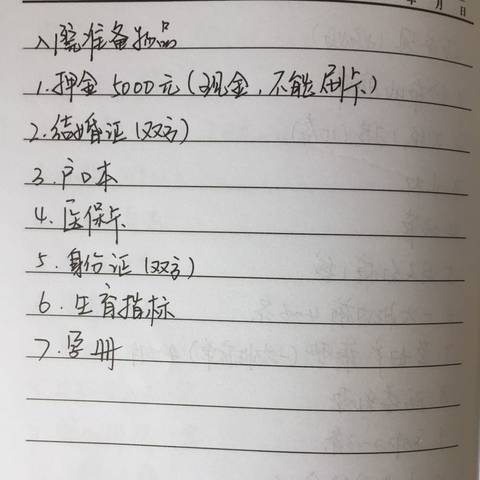 月 日
入院准备物品
1.押金 5000元(现金,不能刷卡)
2.结婚证(双方)
3.户口本
4.医保卡
5.身份证(双方)
6.生育指标
7.孕册